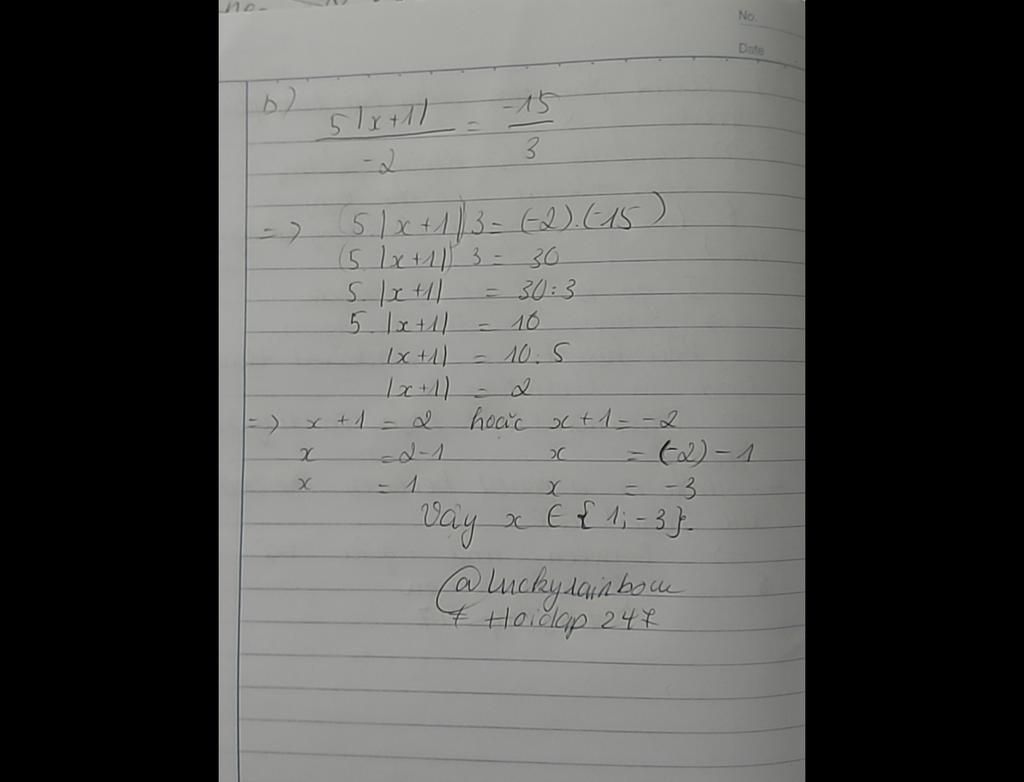 No.
Date
b)
5|x+1| / -2 = -15 / 3
=> (5|x+1|)3 = (-2).(-15)
(5.|x+1|) 3 = 30
5.|x+1| = 30:3
5.|x+1| = 10
|x+1| = 10:5
|x+1| = 2
=> x+1 = 2 hoặc x+1 = -2
x = 2-1 x = (-2)-1
x = 1 x = -3
Vậy x ∈ {1;-3}.
@luckyrainbow
# Hoidap 247